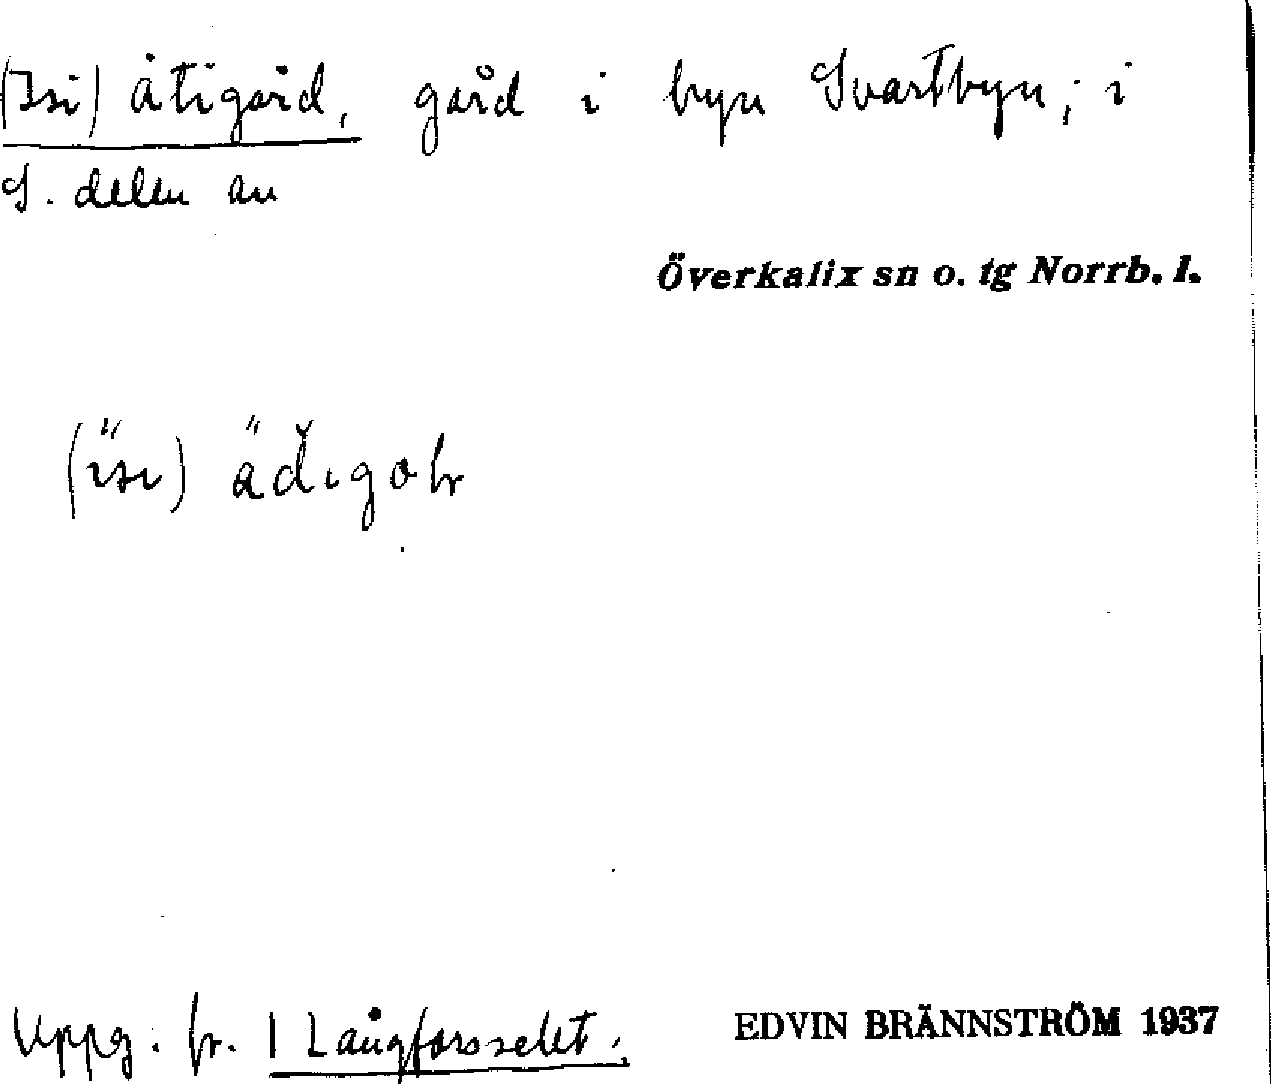 (Isi) åtigård, gård i byn Svartbyn, i
S. delen av
Överkalix sn o. tg Norrb. l.
Uppg. fr. 1 Långforsselet.
EDVIN BRÄNNSTRÖM 1937